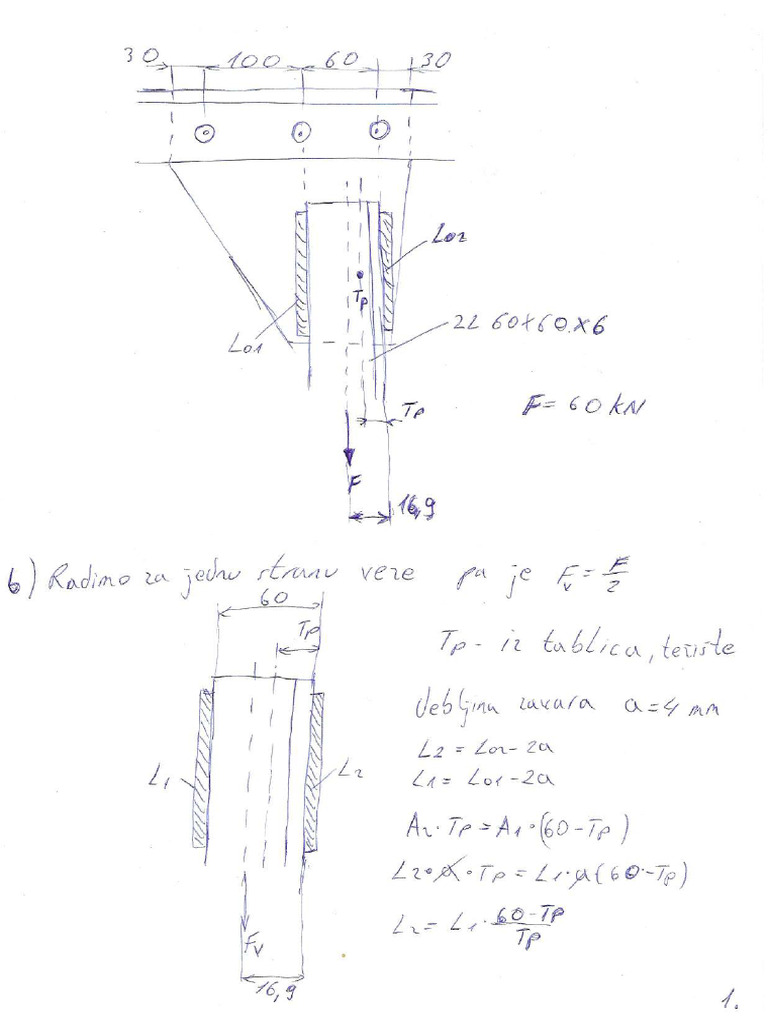 30 100 60 30
L02
Tp
L01
2L 60x60x6
Tp
F = 60 kN
F
16,9
b) Radimo za jednu stranu veze pa je Fv = F/2
60
Tp
Tp - iz tablica, težište
debljina zavara a = 4 mm
L2 = L02 - 2a
L1 L2
L1 = L01 - 2a
A2 · Tp = A1 · (60 - Tp)
L2 · a · Tp = L1 · a (60 - Tp)
L2 = L1 · 60 - Tp / Tp
Fv
16,9
1.